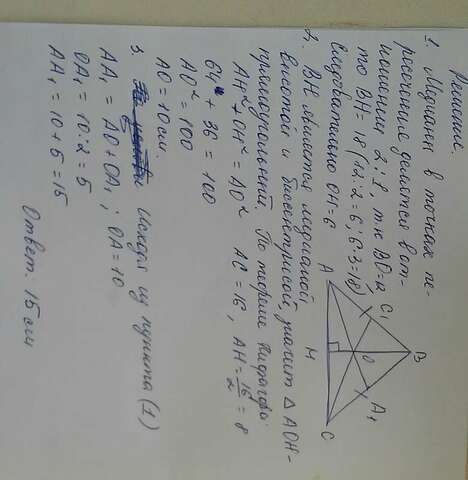 Решение.
1. Медианы в точках пе-
ресечения делятся в от-
ношении 2:1, т.к BO=12
то BH=18 (12:2=6; 6·3=18)
следовательно OH=6
2. BH является медианой,
высотой и биссектрисой, значит △AOH-
прямоугольный. По теореме Пифагора:
AH²+OH²=AO² AC=16, AH=16/2=8
64+36=100
AO²=100
AO=10см.
3. Исходя из пункта (1)
AA₁=AO+OA₁; OA=10
OA₁=10:2=5
AA₁=10+5=15
Ответ. 15 см
B
C₁
A₁
O
A
M
C